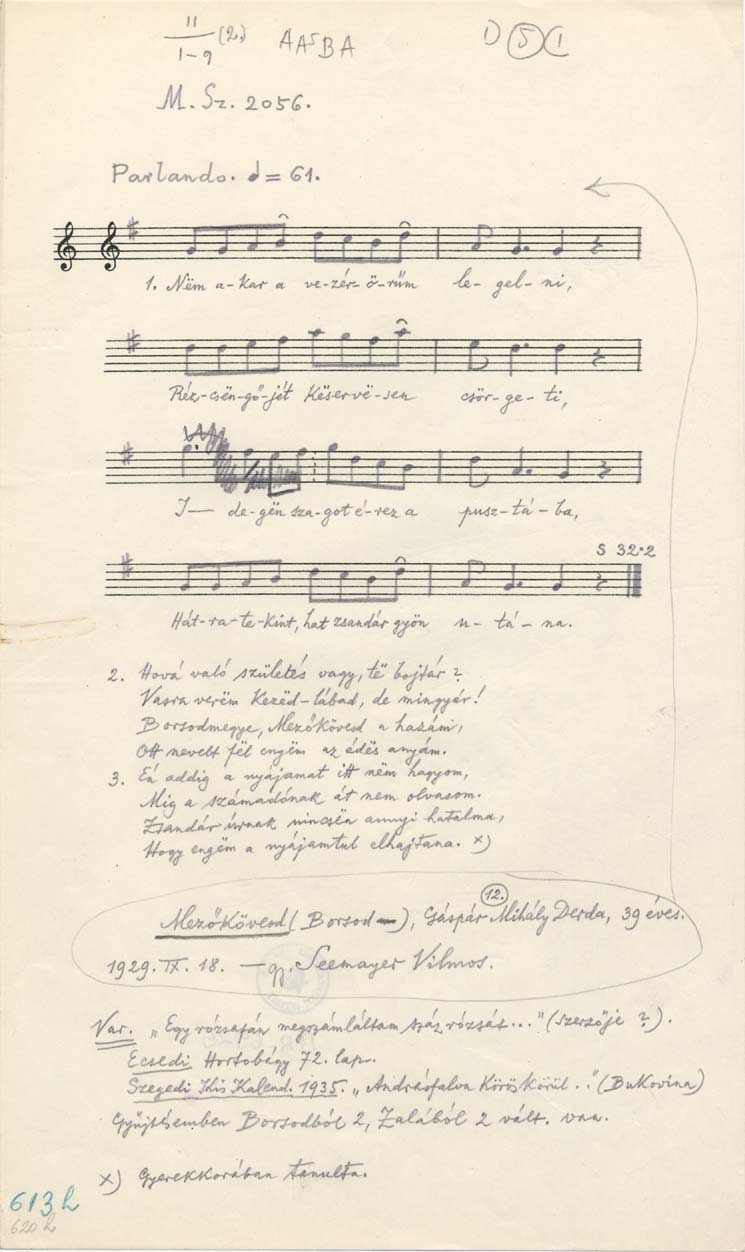 11/1-9 (2.) A A⁵ B A 1) (5) (1
M. Sz. 2056.
Parlando. ♩= 61.
1. Nëm a-kar a ve-zér-ö-rüm le-gel-ni,
Réz-csën-gő-jét Këservë-sen csör-ge-ti,
I— de-gën sza-got é-rez a pusz-tá-ba,
S 32•2
Hát-ra-te-kint, hat zsandár gyön u-tá-na.
2. Hová való születés vagy, të bojtár?
Vasra verëm kezëd-lábad, de mingyár!
Borsodmegye, Mezőkövesd a hazám,
Ott nevelt fël engëm az édës anyám.
3. Én addig a nyájamat itt nëm hagyom,
Mig a számadónak át nem olvasom.
Zsandár úrnak nincsën annyi hatalma,
Hogy engëm a nyájamtul elhajtana. x)
12.
Mezőkövesd (Borsod), Gáspár Mihály Derda, 39 éves.
1929. IX. 18. — gy. Seemayer Vilmos.
Var. „Egy rózsafán megszámláltam száz rózsát..." (szerzője ?).
Ecsedi Hortobágy 72. lap.
Szegedi Kis Kalend. 1935. „Andrásfalva Körös körül .." (Bukovina)
Gyűjtésemben Borsodból 2, Zalából 2 vált. van.
x) Gyerekkorában tanulta.
613 h
620 h